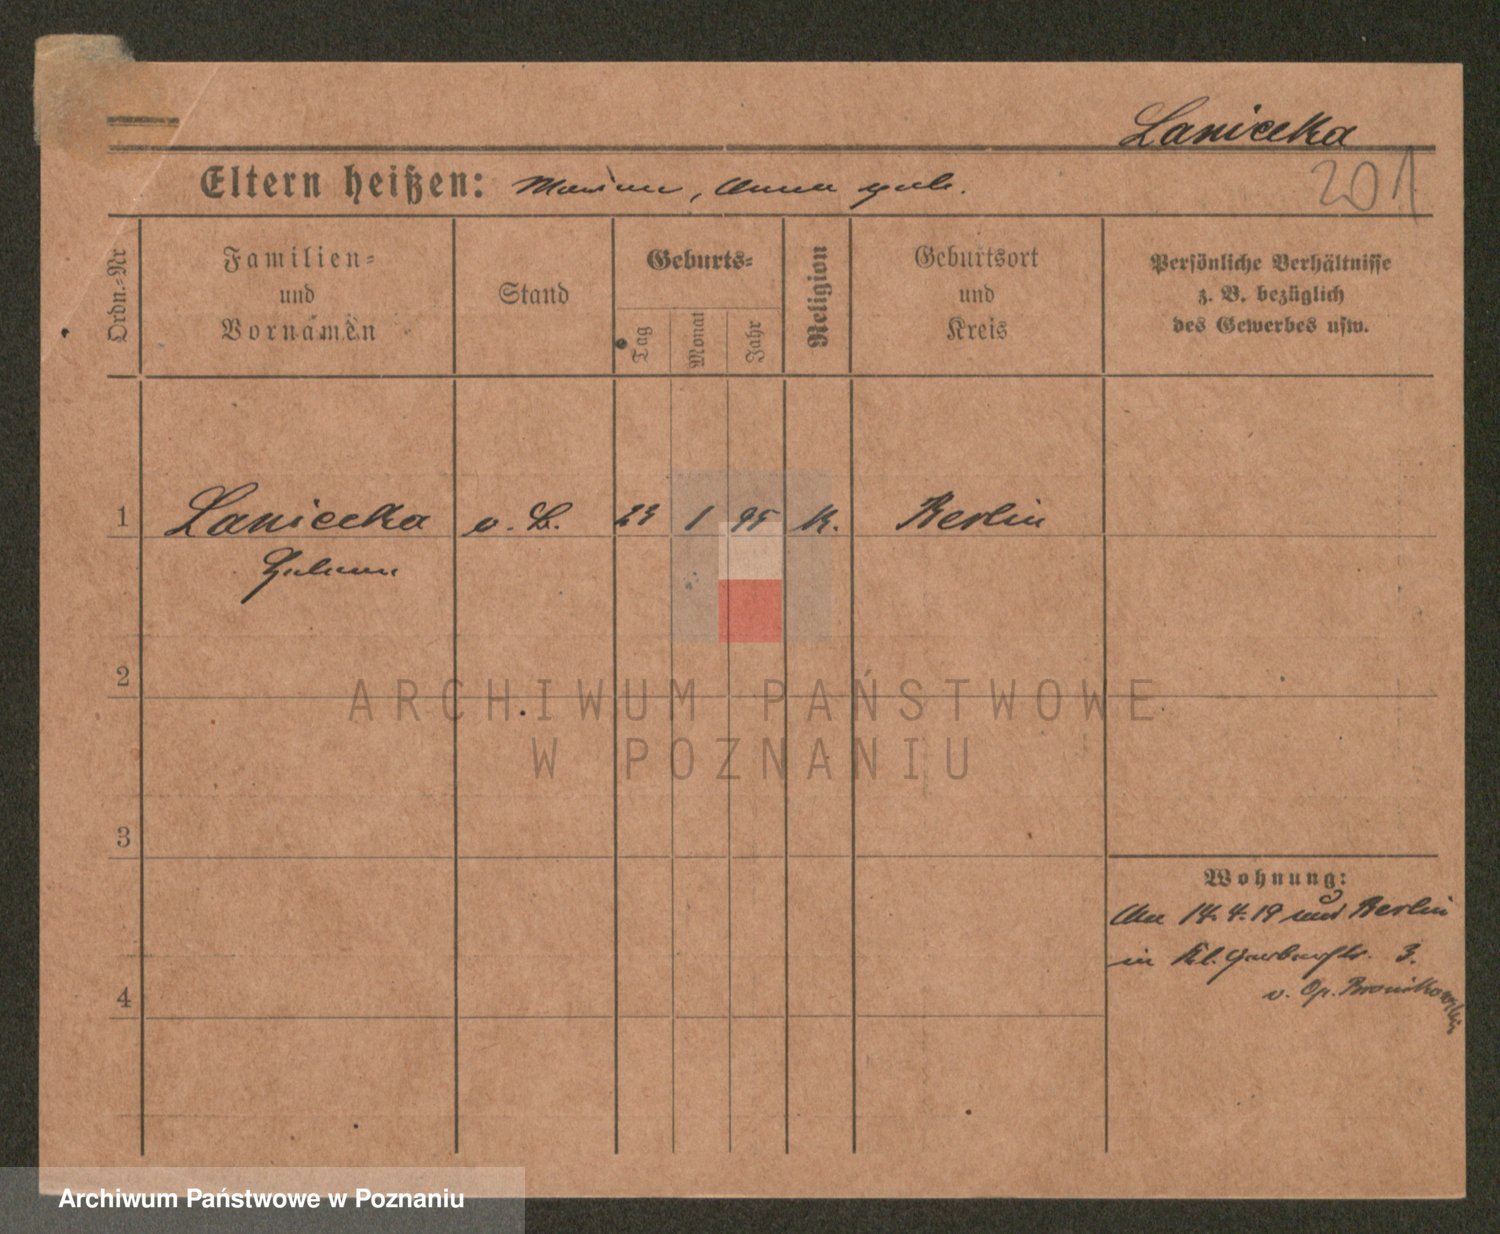 Laniecka
201
Eltern heißen: Marian, Anna geb.
Ordn.-Nr
Familien-
und
Vornamen
Stand
Geburts-
Tag
Monat
Jahr
Religion
Geburtsort
und
Kreis
Persönliche Verhältnisse
z. B. bezüglich
des Gewerbes usw.
1 Laniecka o. B. 23 1 95 K. Berlin
2
3
4
Wohnung:
14.4.19 Berlin
in Kl. Gerberstr. 3.
v. Bronikowski
ARCHIWUM PAŃSTWOWE
W POZNANIU
Archiwum Państwowe w Poznaniu